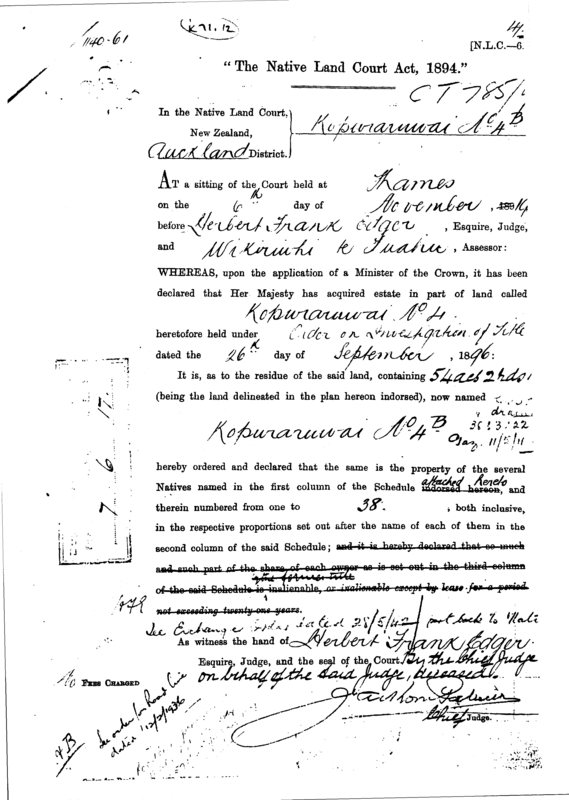 K 71. 12
1140-61
[N.L.C.—6.
"The Native Land Court Act, 1894."
CT 785/
In the Native Land Court,
New Zealand,
Auckland District.
Kopuraruwai No 4B
AT a sitting of the Court held at Thames
on the 6th day of November, 189
before Herbert Frank Edger, Esquire, Judge,
and Wikiriwhi te Tuahu, Assessor:
WHEREAS, upon the application of a Minister of the Crown, it has been
declared that Her Majesty has acquired estate in part of land called
Kopuraruwai No 4.
heretofore held under Order on Investigation of Title
dated the 26th day of September, 1896:
It is, as to the residue of the said land, containing 54acs 2rds
(being the land delineated in the plan hereon indorsed), now named
38:3:22
Kopuraruwai No 4B
Gaz. 11/5/11
hereby ordered and declared that the same is the property of the several
attached hereto
Natives named in the first column of the Schedule indorsed hereon, and
therein numbered from one to 38., both inclusive,
in the respective proportions set out after the name of each of them in the
second column of the said Schedule; and it is hereby declared that so much
and such part of the share of each owner as is set out in the third column
of the said Schedule is inalienable, or inalienable except by lease for a period
not exceeding twenty-one years.
See Exchange dated 28/5/42 part back to
As witness the hand of Herbert Frank Edger
Esquire, Judge, and the seal of the Court. By the Chief Judge
No FEES CHARGED
on behalf of the said Judge, deceased.
Chief Judge.
4B
See order
dated 12/2/1936
7 6 17